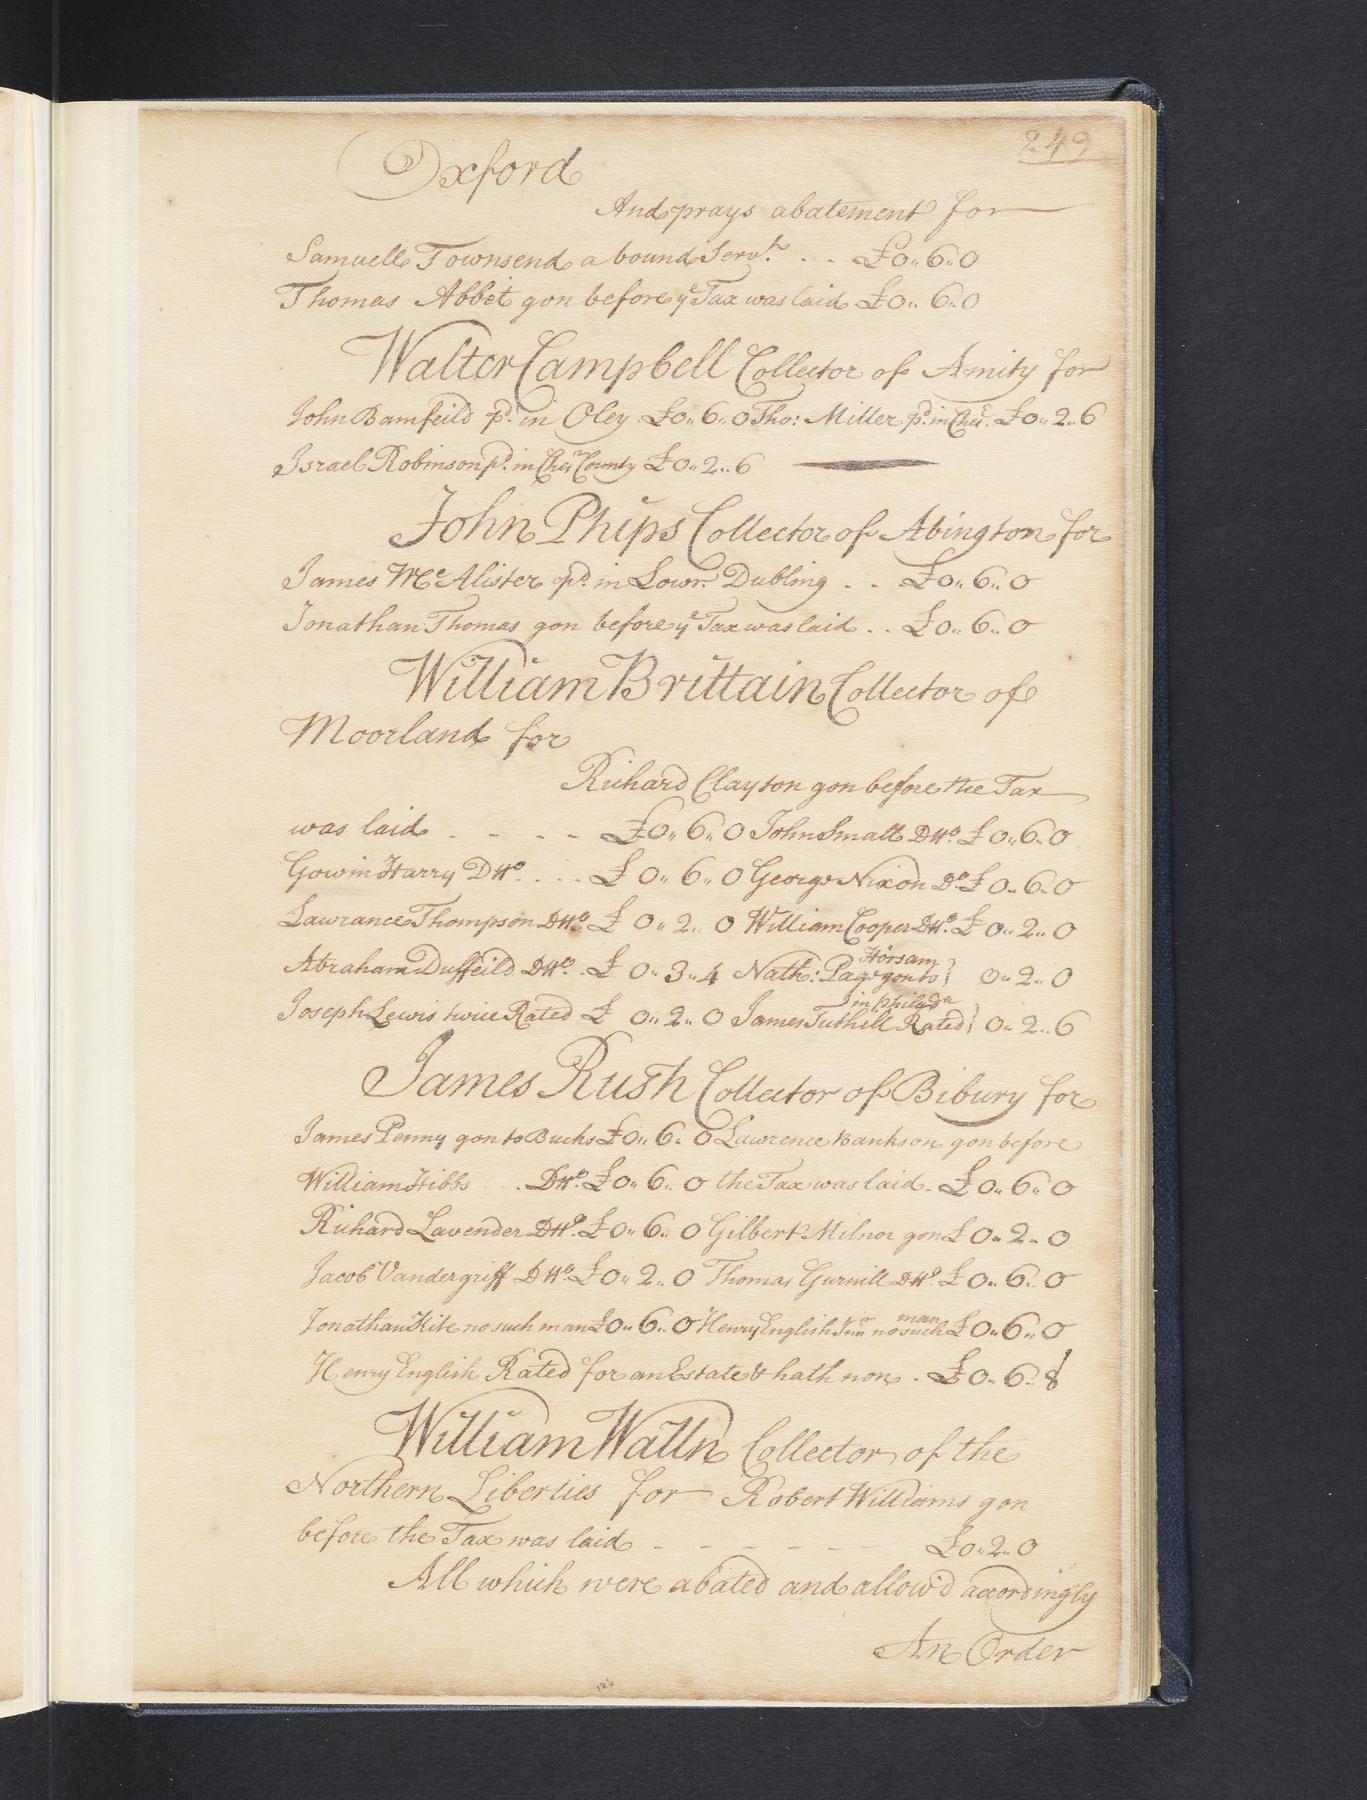 249
Oxford
And prays abatement for
Samuell Townsend a bound Servt. . . £0,,6,,0
Thomas Abbet gon before ye Tax was laid £0,,6,,0
Walter Campbell Collector of Amity for
John Bamfeild pd. in Oley £0,,6,,0 Tho: Miller pd. in Cher. £0,,2,,6
Israel Robinson pd. in Cher County £0,,2,,6
John Phips Collector of Abington for
James Mc.Alister pd. in Lowr. Dubling . . £0,,6,,0
Jonathan Thomas gon before ye Tax was laid . . £0,,6,,0
William Brittain Collector of
Moorland for
Richard Clayton gon before the Tax
was laid - - - - £0,,6,,0 John Small Ditto. £0,,6,,0
Gowin Harry Ditto. . . . £0,,6,,0 George Nixon Do. £0,,6,,0
Lawrance Thompson Ditto. £0,,2,,0 William Cooper Ditto. £0,,2,,0
Abraham Duffeild Ditto. £0,,3,,4 Nath: Page gon to Horsam } 0,,2,,0
Joseph Lewis twice Rated £0,,2,,0 James Tuthill Rated in philada } 0,,2,,6
James Rush Collector of Bibury for
James Penny gon to Bucks £0,,6,,0 Lawrence Bankson gon before
William Hibbs . . Ditto. £0,,6,,0 the Tax was laid - £0,,6,,0
Richard Lavender Ditto. £0,,6,,0 Gilbert Milnor gon £0,,2,,0
Jacob Vandergriff Ditto. £0,,2,,0 Thomas Gurnill Ditto. £0,,6,,0
Jonathan Kite no such man £0,,6,,0 Henry English Junr no such man £0,,6,,0
Henry English Rated for an Estate & hath non . £0,,6,,8
William Walln Collector of the
Northern Liberties for Robert Williams gon
before the Tax was laid - - - - - - £0,,2,,0
All which were abated and allow'd accordingly
An Order